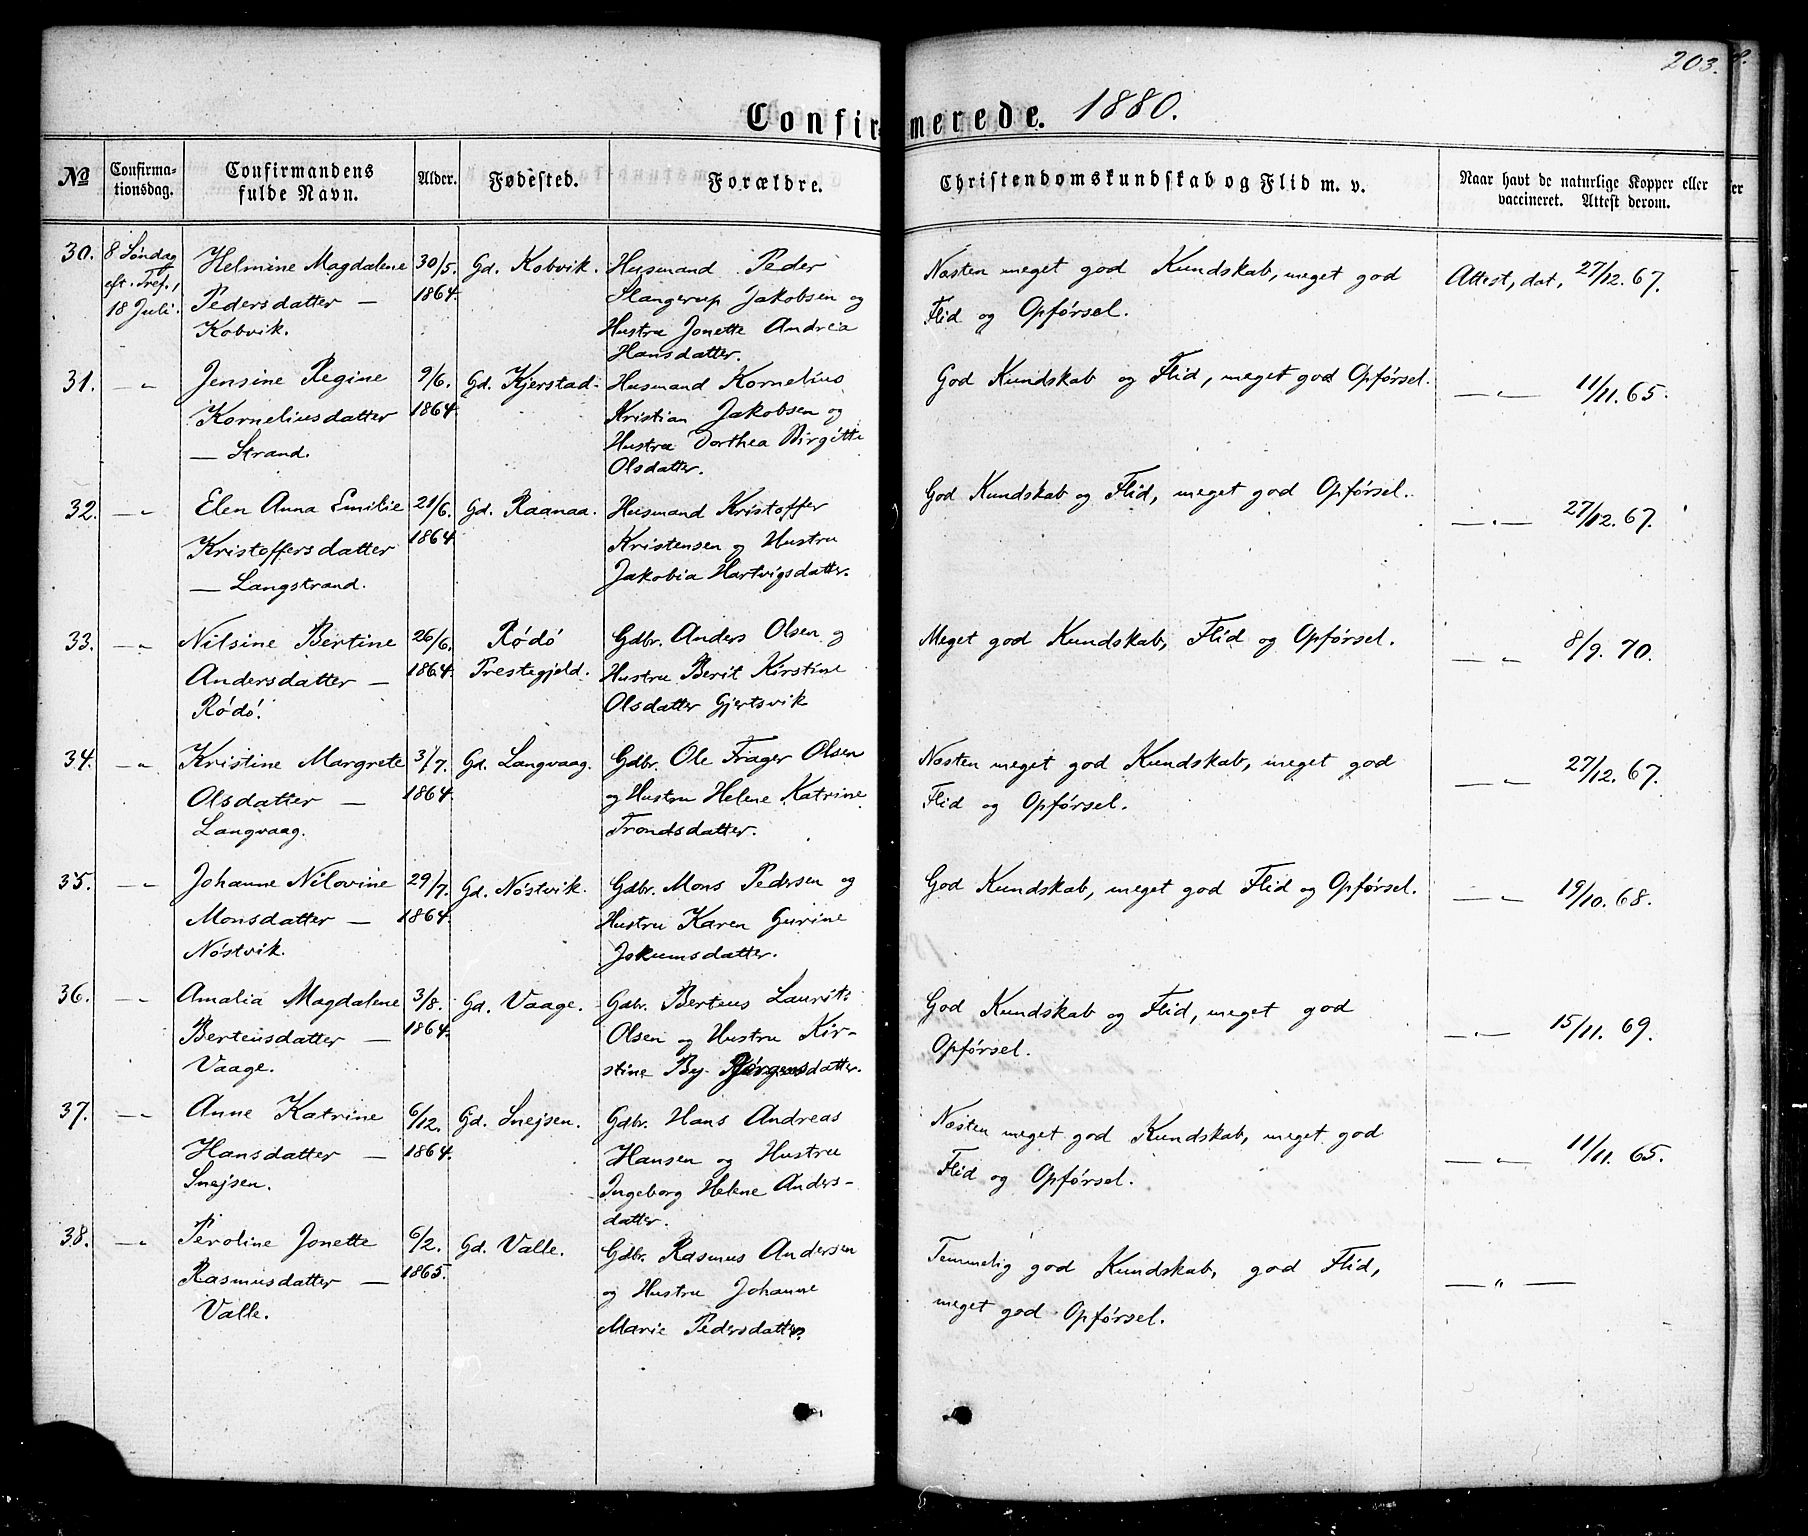 203.
Confirmerede. 1880.
No
Confirma-
tionsdag.
Confirmandens
fulde Navn.
Alder.
Fødested.
Forældre.
Christendomskundskab og Flid m. v.
Naar havt de naturlige Kopper eller
vaccineret. Attest derom.
30.
8 Søndag
eft. Tref.,
18 Juli.
Helmine Magdalene
Pedersdatter —
Kobvik.
30/5.
1864.
Gd. Kobvik.
Husmand Peder
Slangerup Jakobsen og
Hustru Jonette Andrea
Hansdatter.
Næsten meget god Kundskab, meget god
Flid og Opførsel.
Attest, dat, 27/12. 67.
31.
— „
Jensine Regine
Korneliusdatter
— Strand.
9/6.
1864.
Gd. Kjerstad.
Husmand Kornelius
Kristian Jakobsen og
Hustru Dorthea Birgitte
Olsdatter.
God Kundskab og Flid, meget god Opførsel.
— „ — 11/11. 65.
32.
— „
Elen Anna Emilie
Kristoffersdatter
— Langstrand.
21/6.
1864
Gd. Raanaa.
Husmand Kristoffer
Kristensen og Hustru
Jakobia Hartvigsdatter.
God Kundskab og Flid, meget god Opførsel.
— „ — 27/12. 67.
33.
— „
Nilsine Bertine
Andersdatter —
Rødø.
26/6.
1864.
Rødø
Prestegjeld.
Gdbr. Anders Olsen og
Hustru Berit Kirstine
Olsdatter Gjertsvik
Meget god Kundskab, Flid og Opførsel.
— „ — 8/9. 70.
34.
— „
Kristine Margrete
Olsdatter —
Langvaag.
3/7.
1864.
Gd. Langvaag.
Gdbr. Ole Frager Olsen
og Hustru Helene Katrine
Trondsdatter.
Næsten meget god Kundskab, meget god
Flid og Opførsel.
— „ — 27/12. 67.
35.
— „
Johanne Nilovine
Monsdatter —
Nøstvik.
29/7.
1864.
Gd. Nøstvik.
Gdbr. Mons Pedersen og
Hustru Karen Gurine
Jokumsdatter.
God Kundskab, meget god Flid og Opførsel.
— „ — 19/10. 68.
36.
— „
Amalia Magdalene
Berteusdatter —
Vaage.
3/8.
1864.
Gd. Vaage.
Gdbr. Berteus Laurit:
Olsen og Hustru Kir-
stine By. Jørgensdatter.
God Kundskab og Flid, meget god
Opførsel.
— „ — 15/11. 69.
37.
— „
Anne Katrine
Hansdatter —
Snejsen.
6/12.
1864.
Gd. Snejsen.
Gdbr. Hans Andreas
Hansen og Hustru
Ingeborg Helene Anders-
datter.
Næsten meget god Kundskab, meget god
Flid og Opførsel.
— „ — 11/11. 65.
38.
— „
Peroline Jonette
Rasmusdatter —
Valle.
6/2.
1865.
Gd. Valle.
Gdbr. Rasmus Andersen
og Hustru Johanne
Marie Pedersdatter.
Temmelig god Kundskab, god Flid,
meget god Opførsel.
— „ —